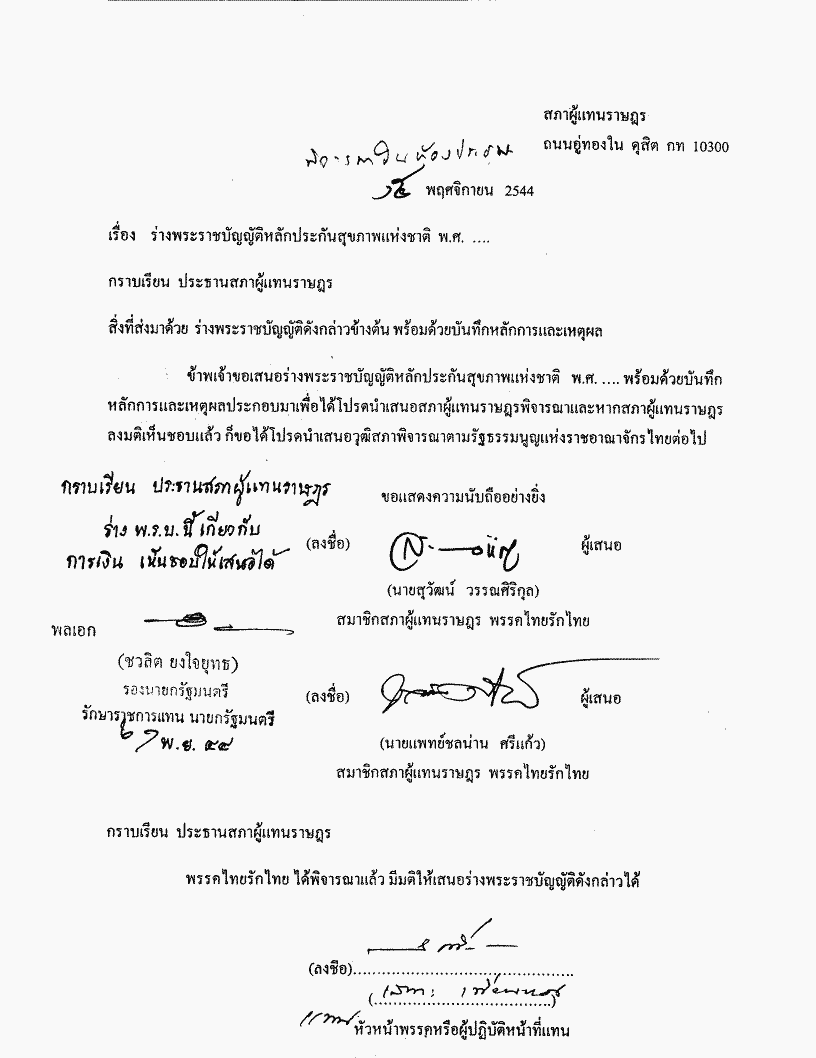 สภาผู้แทนราษฎร
ถนนอู่ทองใน ดุสิต กท 10300
พฤศจิกายน 2544
เรื่อง ร่างพระราชบัญญัติหลักประกันสุขภาพแห่งชาติ พ.ศ. ....
กราบเรียน ประธานสภาผู้แทนราษฎร
สิ่งที่ส่งมาด้วย ร่างพระราชบัญญัติดังกล่าวข้างต้น พร้อมด้วยบันทึกหลักการและเหตุผล
ข้าพเจ้าขอเสนอร่างพระราชบัญญัติหลักประกันสุขภาพแห่งชาติ พ.ศ. .... พร้อมด้วยบันทึก
หลักการและเหตุผลประกอบมาเพื่อได้โปรดนำเสนอสภาผู้แทนราษฎรพิจารณาและหากสภาผู้แทนราษฎร
ลงมติเห็นชอบแล้ว ก็ขอได้โปรดนำเสนอวุฒิสภาพิจารณาตามรัฐธรรมนูญแห่งราชอาณาจักรไทยต่อไป
กราบเรียน ประธานสภาผู้แทนราษฎร
ร่าง พ.ร.บ. นี้ เกี่ยวกับ
การเงิน เห็นชอบให้เสนอได้
พลเอก
(ชวลิต ยงใจยุทธ)
รองนายกรัฐมนตรี
รักษาราชการแทน นายกรัฐมนตรี
พ.ย. ๔๔
ขอแสดงความนับถืออย่างยิ่ง
(ลงชื่อ) ผู้เสนอ
(นายสุวัฒน์ วรรณศิริกุล)
สมาชิกสภาผู้แทนราษฎร พรรคไทยรักไทย
(ลงชื่อ) ผู้เสนอ
(นายแพทย์ชลน่าน ศรีแก้ว)
สมาชิกสภาผู้แทนราษฎร พรรคไทยรักไทย
กราบเรียน ประธานสภาผู้แทนราษฎร
พรรคไทยรักไทย ได้พิจารณาแล้ว มีมติให้เสนอร่างพระราชบัญญัติดังกล่าวได้
(ลงชื่อ)............................................
(....................................)
แทน หัวหน้าพรรคหรือผู้ปฏิบัติหน้าที่แทน